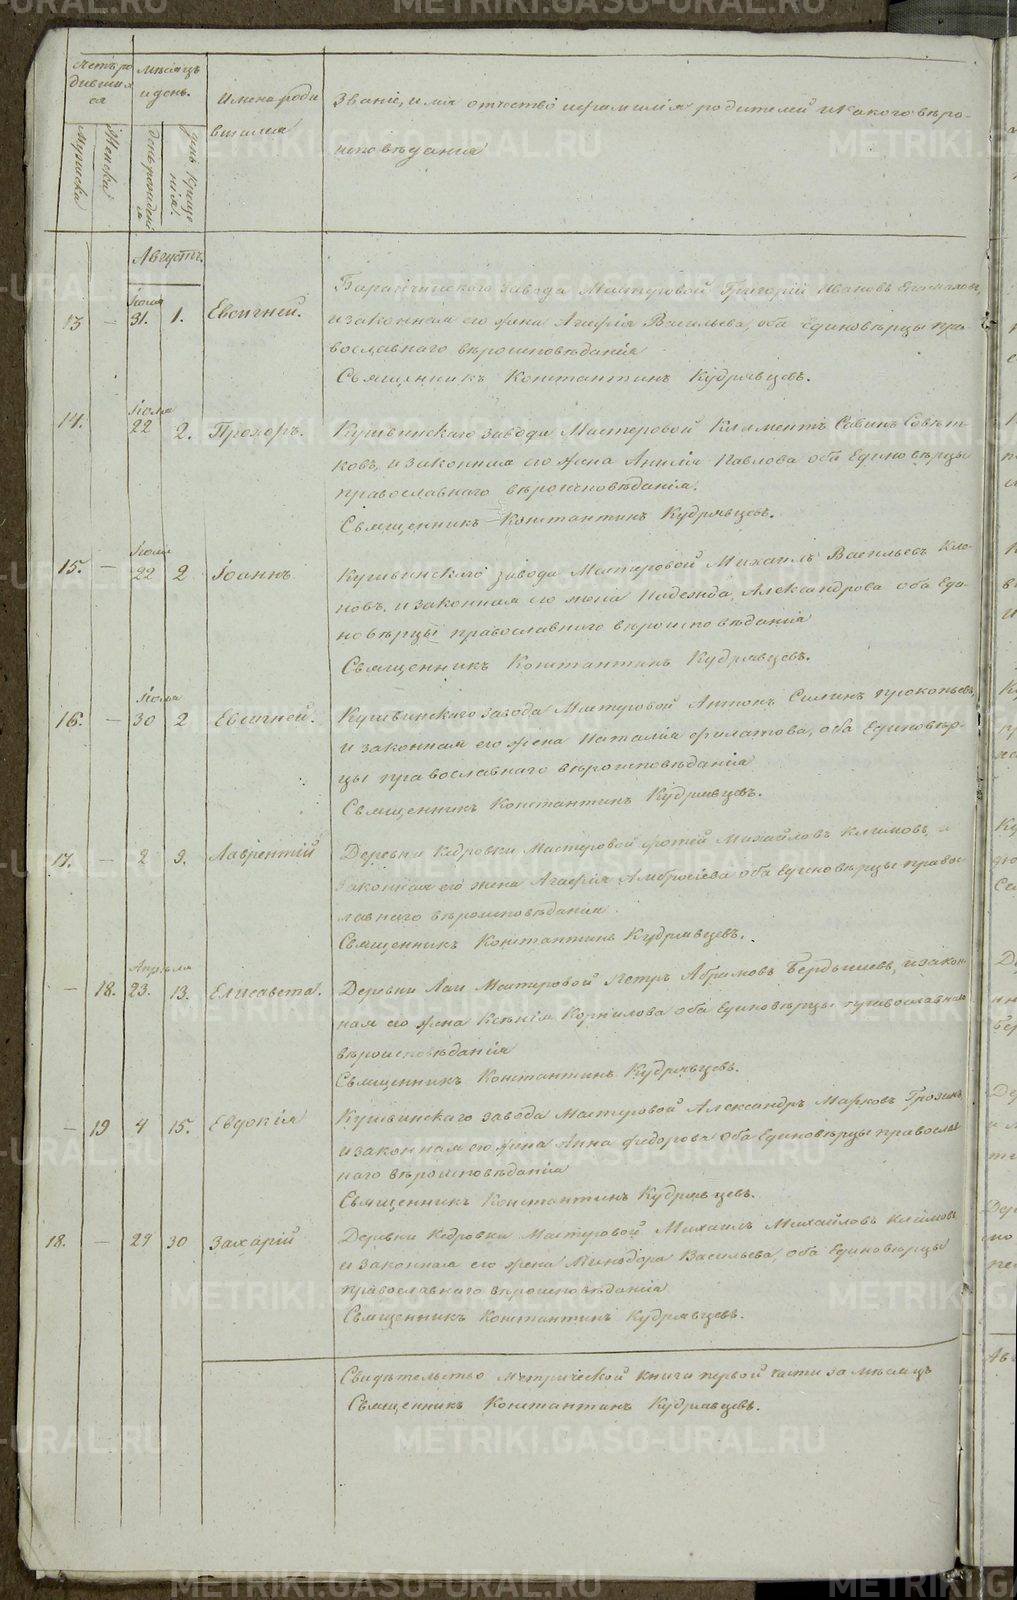 Счетъ ро
дивших
ся
Мѣсяцъ
и день.
Мужеска
Женска
День рожденія
День креще
нія.
Имена роди
вшихся
Званіе, имя отчество и фамилія родителей и какого вѣро-
исповѣданія
Августъ.
13 — Іюля 31. 1. Евсигней. Баранчинскаго завода Мастеровой Григорій Ивановъ
и законная его жена Агафія Васильева, оба Единовѣрцы пра-
вославнаго вѣроисповѣданія
Священникъ Константинъ Кудрявцевъ.
14. Іюля 22 2. Прохоръ. Кушвинскаго завода Мастеровой Климентъ Савинъ
ковъ, и законная его жена Павлова оба Единовѣрцы
православнаго вѣроисповѣданія.
Священникъ Константинъ Кудрявцевъ.
15. — Іюля 22 2 Іоаннъ Кушвинскаго завода Мастеровой Михаилъ Васильевъ Кле-
новъ, и законная его жена Надежда Александрова оба Еди-
новѣрцы православнаго вѣроисповѣданія
Священникъ Константинъ Кудрявцевъ.
16. — Іюля 30 2 Евсигней. Кушвинскаго завода Мастеровой Антонъ Силинъ Прокопьевъ,
и законная его жена Наталія Филатова, оба Единовѣр-
цы православнаго вѣроисповѣданія
Священникъ Константинъ Кудрявцевъ.
17. — 2 9. Лаврентій Деревни Кедровки Мастеровой Фотій Михайловъ Климовъ, и
законная его жена Агафія Амбросіева оба Единовѣрцы правос-
лавнаго вѣроисповѣданія.
Священникъ Константинъ Кудрявцевъ.
— 18. Апрѣля 23. 13. Елисавета. Деревни Лаи Мастеровой Петръ Абрамовъ Бердышевъ, и закон
ная его жена Ксенія Корнилова оба Единовѣрцы православнаго
вѣроисповѣданія
Священникъ Константинъ Кудрявцевъ.
— 19 4 15. Евдокія Кушвинскаго завода Мастеровой Александръ Марковъ Грозинъ
и законная его жена Анна Федорова оба Единовѣрцы правосла
наго вѣроисповѣданія
Священникъ Константинъ Кудрявцевъ.
18. — 29 30 Захарій Деревни Кедровки Мастеровой Михаилъ Михайловъ Климовъ,
и законная его жена Минодора Васильева, оба Единовѣрцы
православнаго вѣроисповѣданія
Священникъ Константинъ Кудрявцевъ.
Свидѣтельство Метрической книги первой части за мѣсяцъ
Священникъ Константинъ Кудрявцевъ.
METRIKI.GASO-URAL.RU